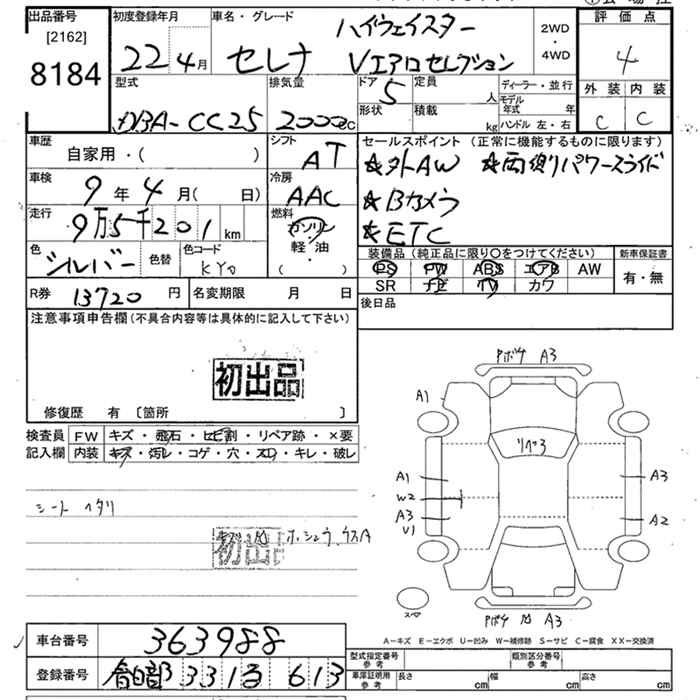 出品番号 初度登録年月 車名・グレード ハイウェイスター 2WD・4WD 評価点
[2162]
8184 22 4月 セレナ Vエアロセレクション 4
型式 排気量 ドア 5 定員 人 ディーラー・並行 外装 内装
DBA-CC25 2000cc 形状 積載 kg モデル年式 年 C C
ハンドル 左・右
車歴 自家用・( ) シフト AT セールスポイント (正常に機能するものに限ります)
車検 9年4月( 日) 冷房 AAC ☆外AW ☆両側パワースライド
☆Bカメラ
走行 9万5千201km 燃料 ガソリン・軽・油 ( ) ☆ETC
色 シルバー 色替 色コード KY0 装備品(純正品に限り○をつけてください) 新車保証書
PS PW ABS エアB AW 有・無
SR ナビ TV カワ
R券 13720円 名変期限 月 日 後日品
注意事項申告欄(不具合内容等は具体的に記入して下さい)
初出品
修復歴 有 〔箇所 〕
検査員 FW キズ・飛石・ヒビ割・リペア跡・×要
記入欄 内装 キズ・汚レ・コゲ・穴・スレ・キレ・破レ
シート ヘタリ
初出品
Fボケ A3
A1
リペ3
A1 A3
W2
A3 A2
V1
スペ
Fボケ A3
A-キズ E-エクボ U-凹み W-補修跡 S-サビ C-腐食 XX-交換済
車台番号 363988
登録番号 春日部 331 613
型式指定番号 参考 類別区分番号 参考
車庫証明用 参考 長さ cm 幅 cm 高さ cm